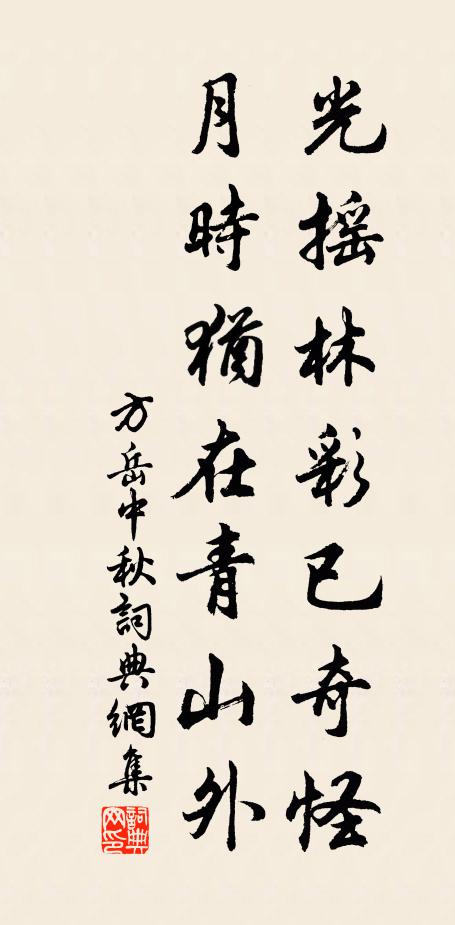 光摇林彩已奇怪
月時猶在青山外
方岳中秋詞典網集
詞典网印